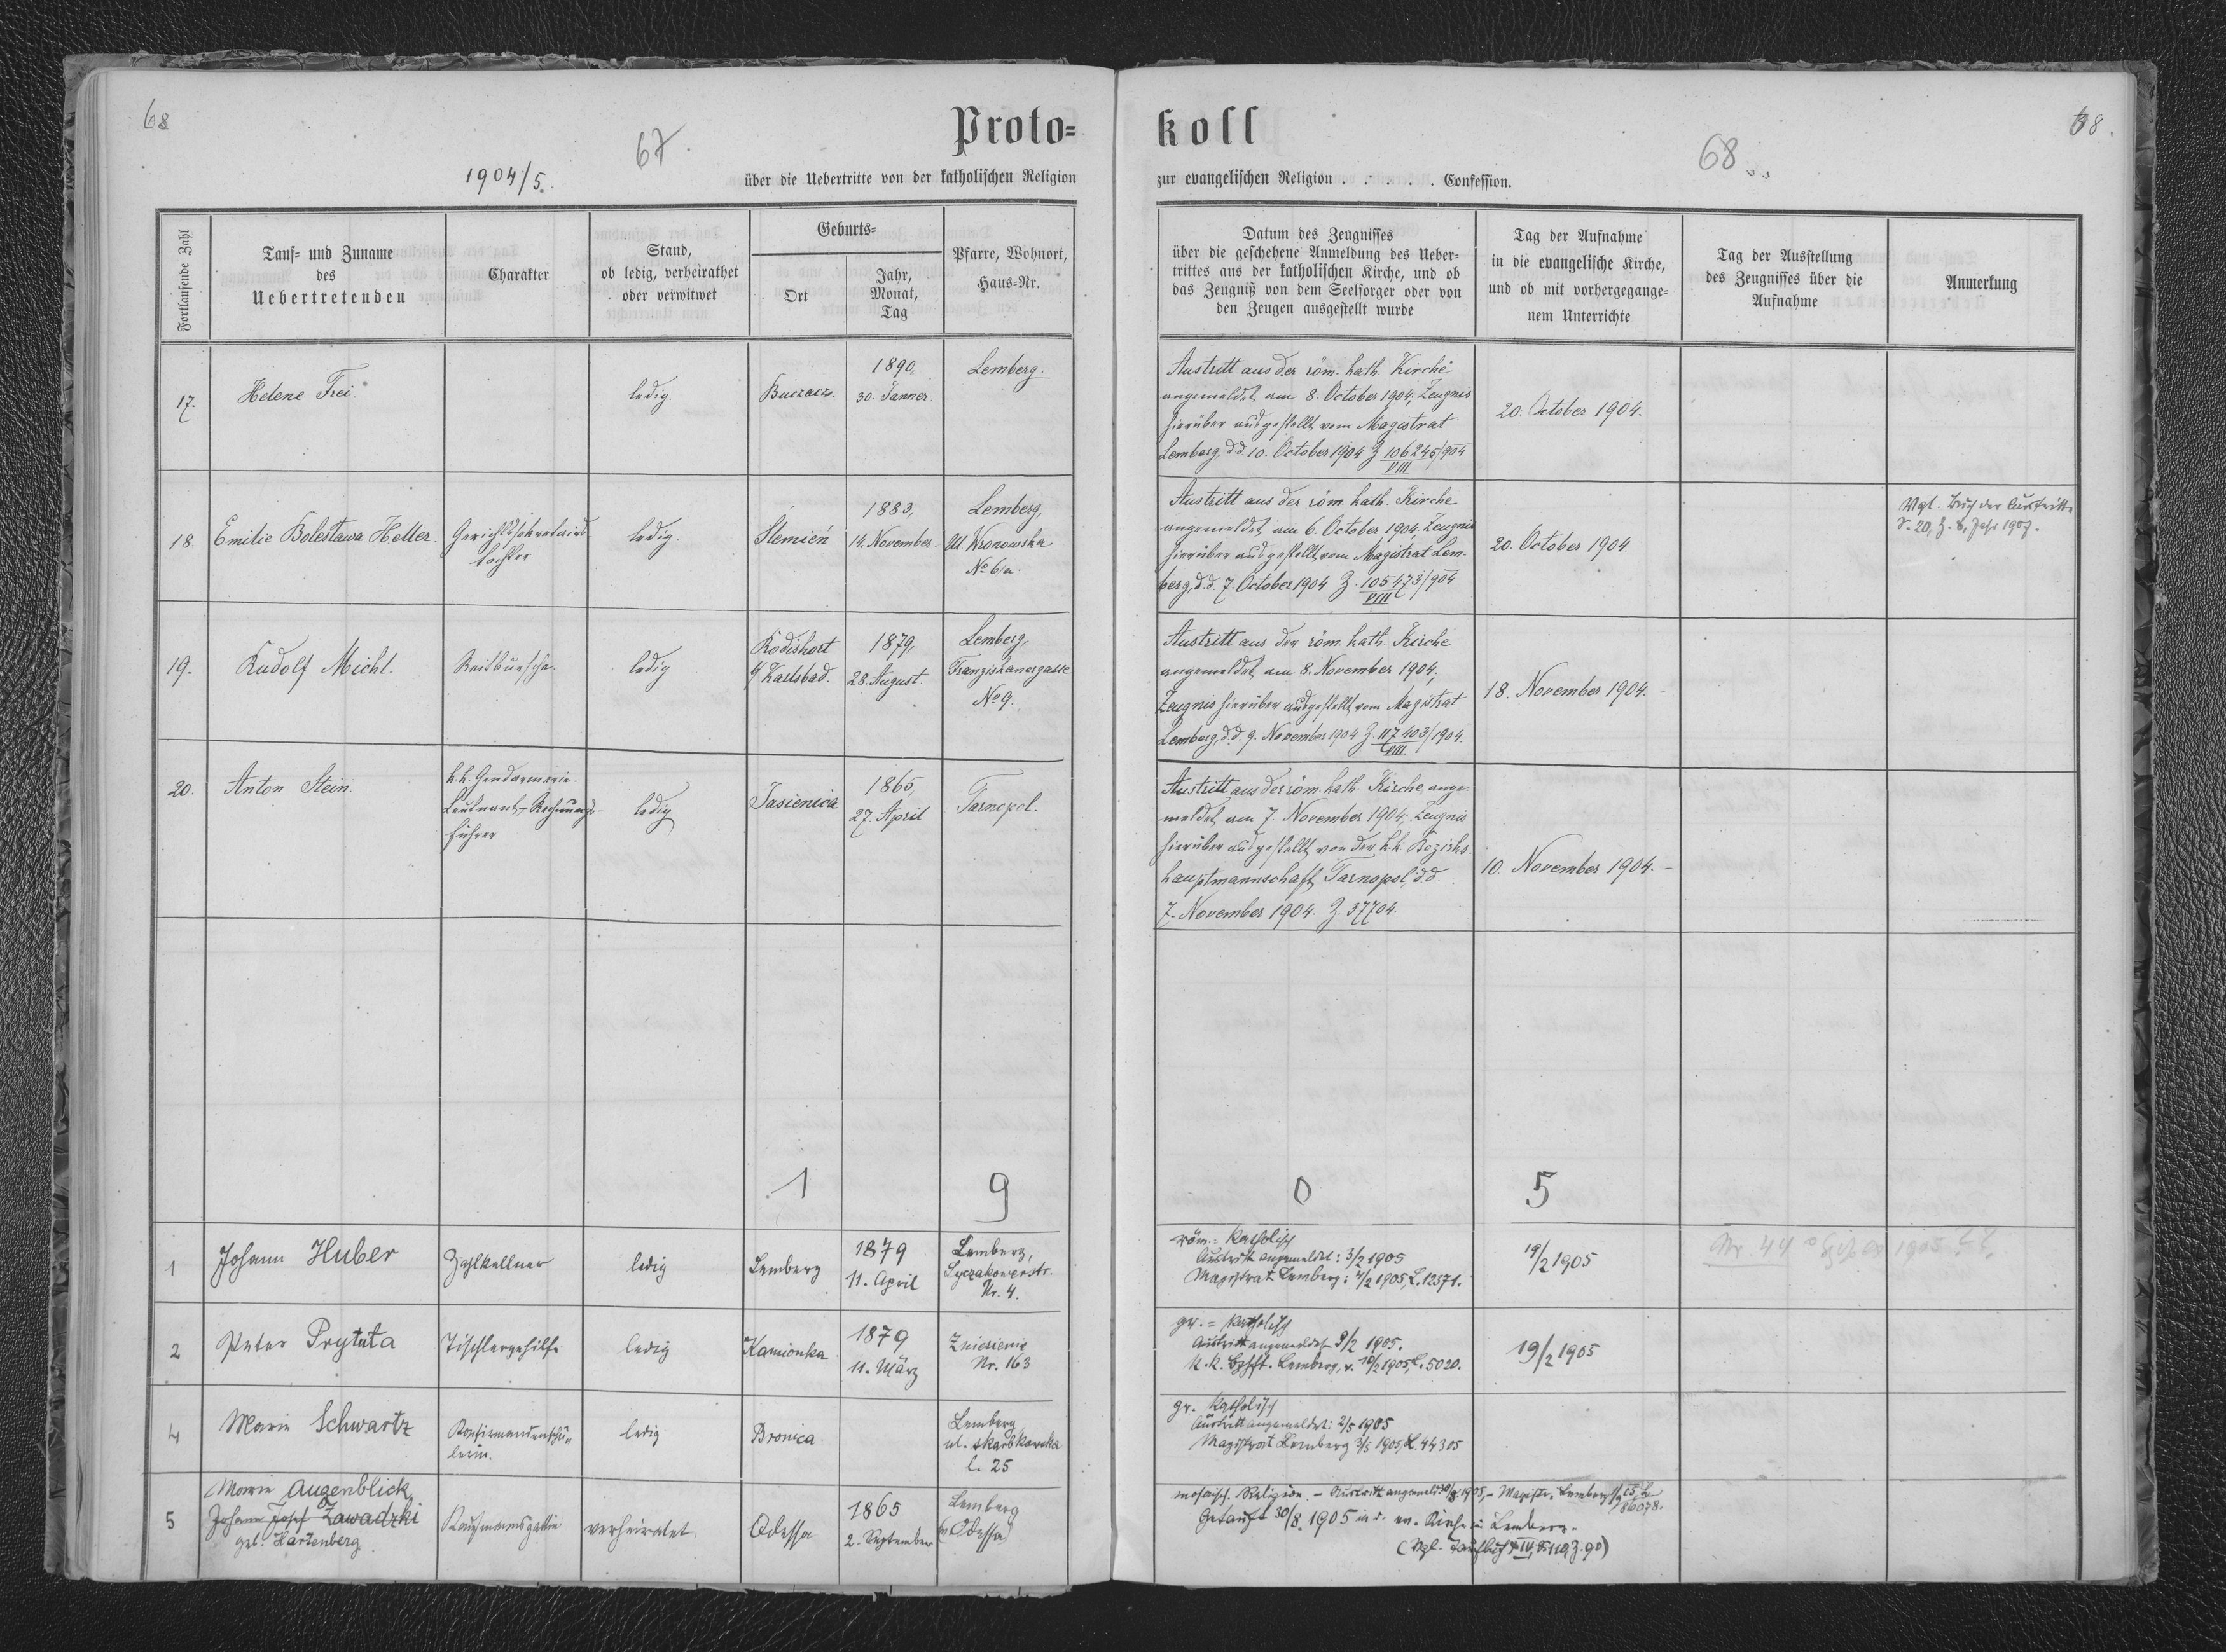 68
67.
1904/5.
Proto=
über die Uebertritte von der katholischen Religion
koll
68.
68.
zur evangelischen Religion . . . . . . Confession.
Fortlaufende Zahl
Tauf= und Zuname
des
Uebertretenden
Charakter
Stand,
ob ledig, verheirathet
oder verwitwet
Geburts=
Ort
Jahr,
Monat,
Tag
Pfarre, Wohnort,
Haus=Nr.
Datum des Zeugnisses
über die geschehene Anmeldung des Ueber=
trittes aus der katholischen Kirche, und ob
das Zeugniß von dem Seelsorger oder von
den Zeugen ausgestellt wurde
Tag der Aufnahme
in die evangelische Kirche,
und ob mit vorhergegange=
nem Unterrichte
Tag der Ausstellung
des Zeugnisses über die
Aufnahme
Anmerkung
17.
Helene Frei.
ledig.
Buczacz.
1890,
30. Jänner
Lemberg.
Austritt aus der röm. kath. Kirche
angemeldet am 8. October 1904; Zeugnis
hierüber ausgestellt vom Magistrat
Lemberg, d.d. 10. October 1904 Z. 106245/904
VIII
20. October 1904.
18.
Emilie Bolesława Heller.
Gerichtssekretairs-
tochter
ledig.
Slemień
1883,
14. November.
Lemberg,
Ul. Kronowska
No 6/a.
Austritt aus der röm. kath. Kirche
angemeldet am 6. October 1904, Zeugnis
hierüber ausgestellt vom Magistrat Lem-
berg, d.d. 7. October 1904 Z. 105473/904
VIII
20. October 1904.
Vgl. Buch der Austritte
S. 20, Z. 8, Jahr 1907.
19.
Rudolf Michl.
Reitbursche.
ledig
Rodishort
b/ Karlsbad.
1879,
28. August.
Lemberg,
Franziskanergasse
No 9.
Austritt aus der röm. kath. Kirche
angemeldet am 8. November 1904;
Zeugnis hierüber ausgestellt vom Magistrat
Lemberg, d.d. 9. November 1904 Z. 117403/1904.
VIII
18. November 1904. -
20.
Anton Stein.
k.k. Gendarmerie-
Leutnant-Rechnungs-
führer
ledig
Jasienica
1865,
27. April
Tarnopol.
Austritt aus der röm. kath. Kirche ange-
meldet am 7. November 1904; Zeugnis
hierüber ausgestellt von der k.k. Bezirks-
hauptmannschaft Tarnopol, d.d.
7. November 1904. Z. 37704.
10. November 1904. -
1 9 0 5
1
Johann Huber
Zahlkellner
ledig
Lemberg
1879
11. April
Lemberg,
Lyczakowerstr.
Nr. 4.
röm.= katholisch
Austritt angemeldet: 3/2 1905
Magistrat Lemberg: 4/2 1905, L. 12571.
19/2 1905
2
Peter Prytuta
Tischlergehilfe
ledig
Kamionka
1879
11. März
Zniesienie
Nr. 163
gr. = katholisch
Austritt angemeldet 9/2 1905.
K.K. Bzhft. Lemberg, v. 10/2 1905, L. 5020.
19/2 1905
4
Marie Schwartz
Konfirmandenschü-
lerin.
ledig
Bronica
Lemberg
ul. Skarbkowska
l. 25
gr. katholisch
Austritt angemeldet: 2/5 1905
Magistrat Lemberg 3/5 1905, L. 44305
5
Marie Augenblick
Johann Josef Zawadzki
geb. Hartenberg
Kaufmannsgattin
verheiratet
Odessa
1865
2. September
Lemberg
(Odessa)
mosaisch. Religion. - Austritt angemeld. 30/8 1905, - Magistr. Lemberg
86078.
Getauft 30/8. 1905 in d. ev. Kirche in Lemberg.
(Vgl. Taufbuch IV, S. 119, Z. 90)